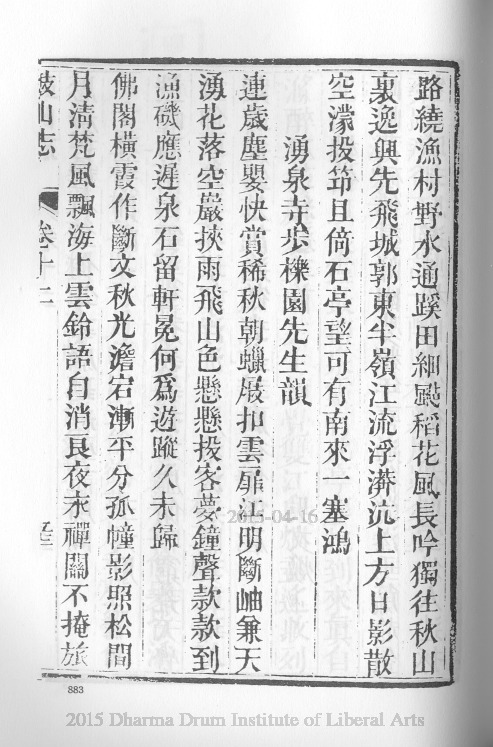 路繞漁村野水通蹊田細颭稻花風長吟獨往秋山
裏逸興先飛城郭東半嶺江流浮漭沆上方日影散
空濛投笻且倚石亭望可有南來一塞鴻
湧泉寺步櫟園先生韻
連歲塵嬰快賞稀秋朝蠟屐扣雲扉江明斷岫兼天
湧花落空巖挾雨飛山色懸懸投客夢鐘聲款款到
漁磯應遲泉石留軒冕何爲遊蹤久未歸
佛閣橫霞作斷文秋光澹宕漸平分孤幢影照松間
月清梵風飄海上雲鈴語自消長夜永禪關不掩旅
鼓山志
卷十二
2015-04-16
883
2015 Dharma Drum Institute of Liberal Arts